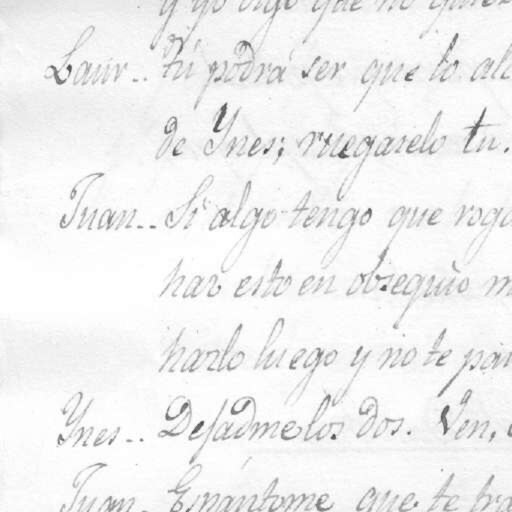 y yo digo que no quier
Laur.. Tú podrá ser que lo al
de Ynes; ruegaselo tu.
Juan.. Si algo tengo que roga
haz esto en obsequio m
hazlo luego y no te par
Ynes.. Dejadme los dos. Ven,
Juan.. Espántome que te tra